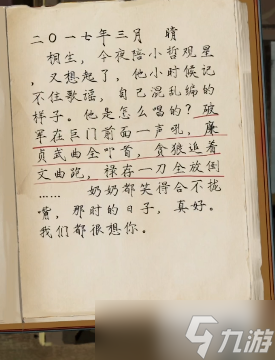 二〇一七年三月 晴
桐生，今夜陪小哲观星
，又想起了，他小时候记
不住歌谣，自己混乱编的
样子。他是怎么唱的？破
军在巨门前面一声吼，廉
贞武曲全叩首，贪狼追着
文曲跑，禄存一刀全放倒
…… 奶奶都笑得合不拢
嘴，那时的日子，真好。
我们都很想你。
九游